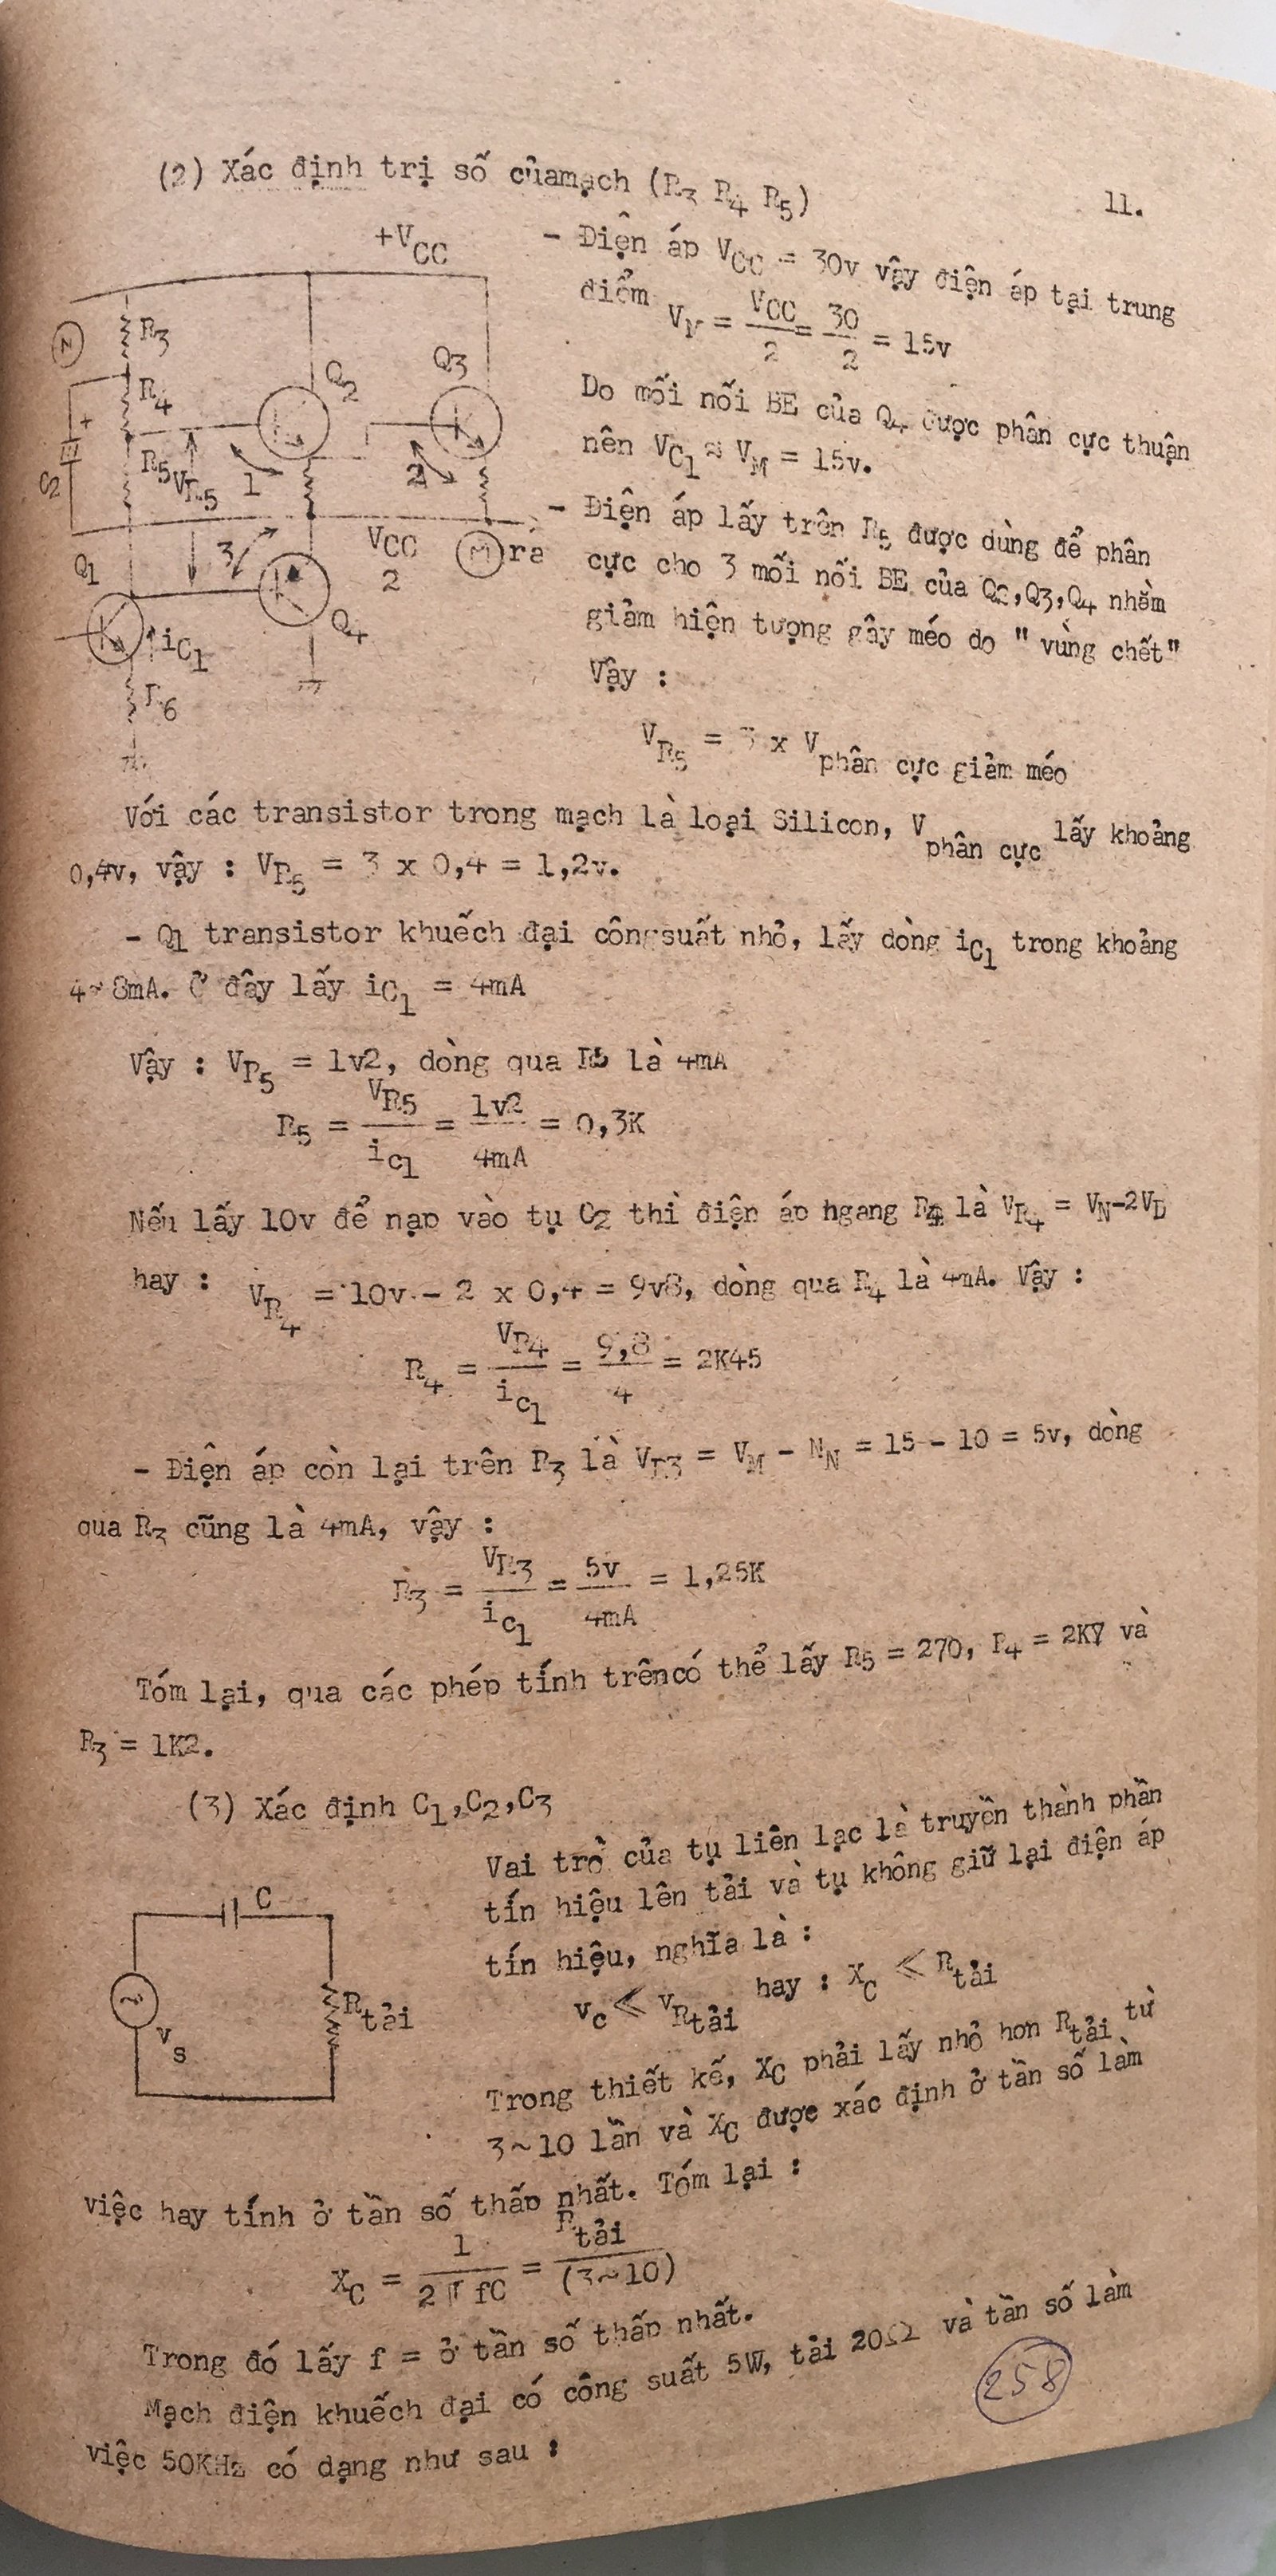 (2) Xác định trị số củamạch (R3 R4 R5)
11.
+VCC
N
R3
R4
R5
VR5
C2
+
Q1
Q2
Q3
Q4
1
2
3
VCC
2
M
ra
iC1
R6
- Điện áp VCC = 30v vậy điện áp tại trung
điểm VM = VCC/2 = 30/2 = 15v
Do mối nối BE của Q4 được phân cực thuận
nên VC1 ≈ VM = 15v.
- Điện áp lấy trên R5 được dùng để phân
cực cho 3 mối nối BE của Q2,Q3,Q4 nhằm
giảm hiện tượng gây méo do " vùng chết"
Vậy :
VR5 = 3 x Vphân cực giảm méo
Với các transistor trong mạch là loại Silicon, Vphân cực lấy khoảng
0,4v, vậy : VR5 = 3 x 0,4 = 1,2v.
- Q1 transistor khuếch đại côngsuất nhỏ, lấy dòng iC1 trong khoảng
4~ 8mA. Ở đây lấy iC1 = 4mA
Vậy : VR5 = 1v2, dòng qua R5 là 4mA
R5 = VR5/iC1 = 1v2/4mA = 0,3K
Nếu lấy 10v để nạp vào tụ C2 thì điện áp hgang R4 là VR4 = VN-2VD
hay : VR4 = 10v - 2 x 0,4 = 9v8, dòng qua R4 là 4mA. Vậy :
R4 = VR4/iC1 = 9,8/4 = 2K45
- Điện áp còn lại trên R3 là VR3 = VM - NN = 15 - 10 = 5v, dòng
qua R3 cũng là 4mA, vậy :
R3 = VR3/iC1 = 5v/4mA = 1,25K
Tóm lại, qua các phép tính trêncó thể lấy R5 = 270, R4 = 2K7 và
R3 = 1K2.
(3) Xác định C1,C2,C3
C
vs
Rtải
Vai trò của tụ liên lạc là truyền thành phần
tín hiệu lên tải và tụ không giữ lại điện áp
tín hiệu, nghĩa là :
vc ⩽ vRtải hay : XC ⩽ Rtải
Trong thiết kế, XC phải lấy nhỏ hơn Rtải từ
3~10 lần và XC được xác định ở tần số làm
việc hay tính ở tần số thấp nhất. Tóm lại :
XC = 1/2π fC = Rtải/(3~10)
Trong đó lấy f = ở tần số thấp nhất.
Mạch điện khuếch đại có công suất 5W, tải 20Ω và tần số làm
việc 50KHz có dạng như sau :
258